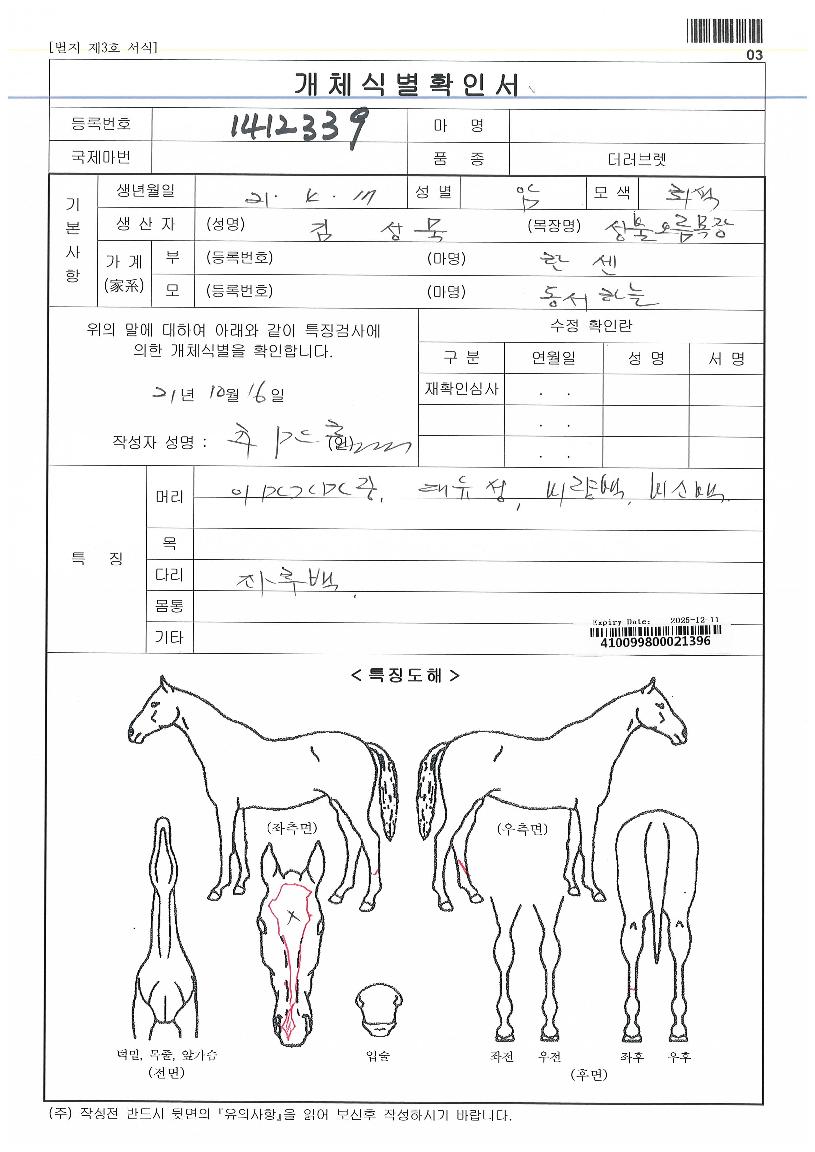 [별지 제3호 서식]
03
개체식별확인서
등록번호 1412339 마 명
국제마번 품 종 더러브렛
기본사항
생년월일 21. 성별 암 모색
생 산 자 (성명) 김 상 욱 (목장명)
가계(家系) 부 (등록번호) (마명) 한 센
모 (등록번호) (마명) 동서하늘
위의 말에 대하여 아래와 같이 특징검사에
의한 개체식별을 확인합니다.
21년 10월 16일
작성자 성명 : (인)
수정 확인란
구 분 연월일 성 명 서 명
재확인심사 . .
. .
. .
특 징
머리
목
다리 좌후백.
몸통
기타
Expiry Date: 2025-12-11
410099800021396
< 특징도해 >
(좌측면) (우측면)
턱밑, 목줄, 앞가슴
(전면)
입술
좌전 우전 좌후 우후
(후면)
(주) 작성전 반드시 뒷면의 『유의사항』을 읽어 보신후 작성하시기 바랍니다.